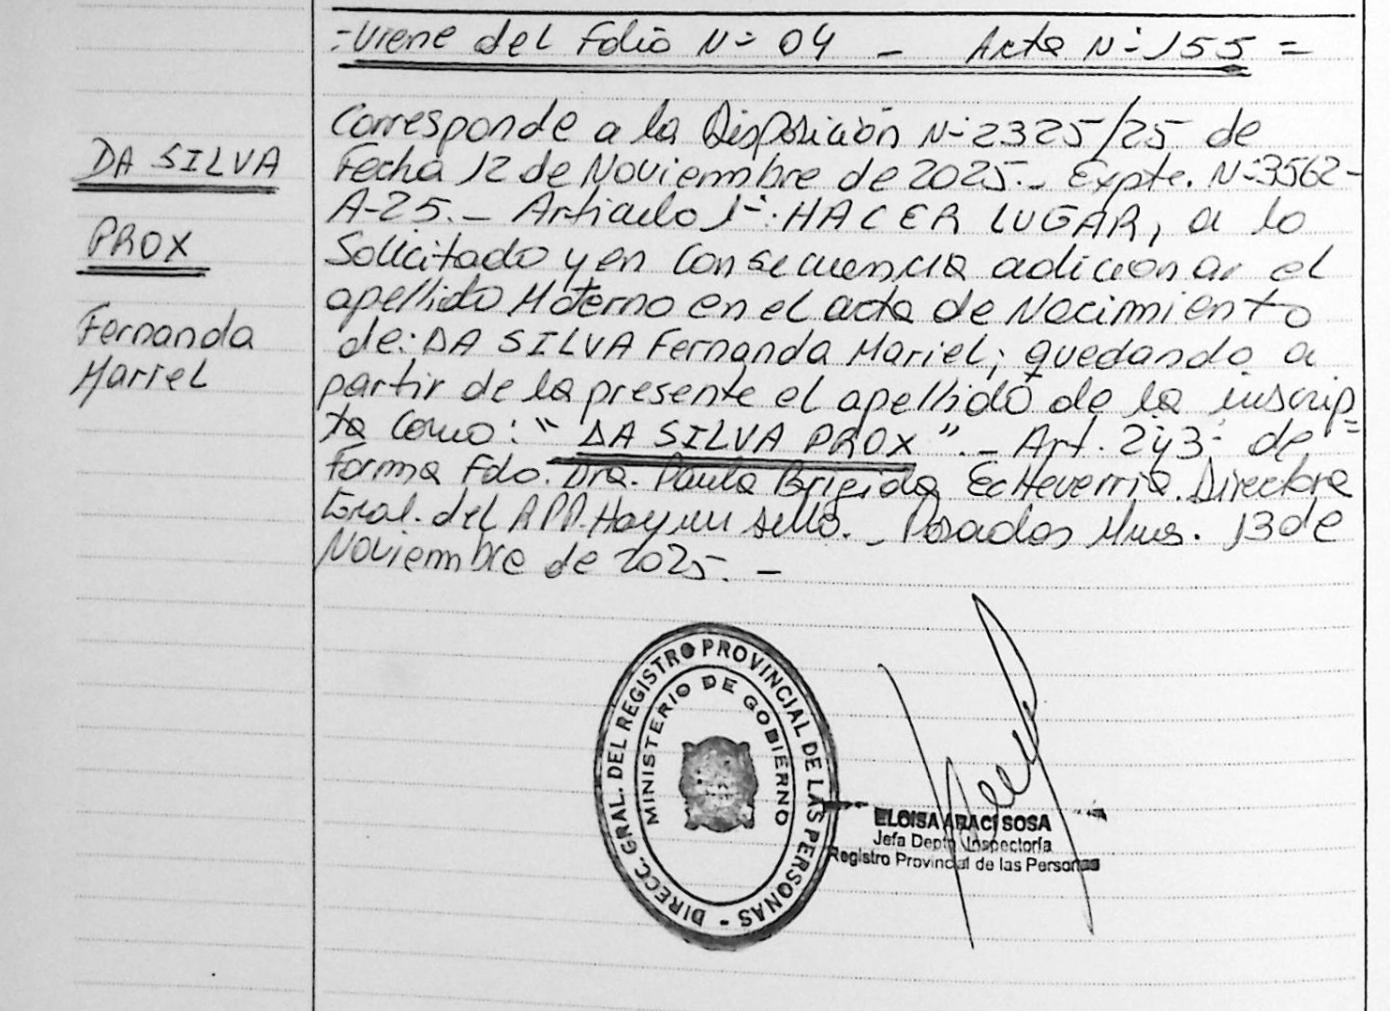 =Viene del Folio Nº 04 _ Acta Nº 155=
DA SILVA
PROX
Fernanda
Mariel
Corresponde a la Disposición Nº 2325/25 de
Fecha 12 de Noviembre de 2025._ Expte. Nº 3562-
A-25._ Artículo 1º: HACER LUGAR, a lo
Solicitado y en Consecuencia adicionar el
apellido Materno en el acta de Nacimiento
de: DA SILVA Fernanda Mariel; quedando a
partir de la presente el apellido de la inscrip=
ta Como: "DA SILVA PROX"._ Art. 2y3: de
forma Fdo. Dra. Paula Brigida Echeverria. Directora
Gral. del RPP. Hay un sello._ Posadas Mnes. 13 de
Noviembre de 2025._
DIRECC. GRAL. DEL REGISTRO PROVINCIAL DE LAS PERSONAS -
MINISTERIO DE GOBIERNO
ELOISA ARACI SOSA
Jefa Depto Inspectoría
Registro Provincial de las Personas